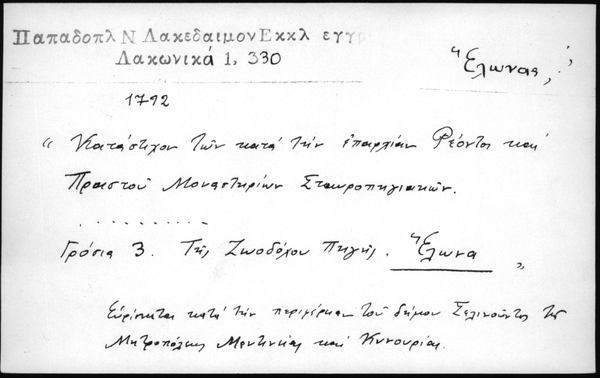 Παπαδοπλ Ν Λακεδαιμον Εκκλ εγγρ
Λακωνικά 1, 330
Ἕλωνας,
1792
“ Κατάστιχον τῶν κατά τήν ἐπαρχίαν Ρέοντος καί
Πραστοῦ Μοναστηρίων Σταυροπηγιακῶν.
. . . . . . . . .
Γρόσια 3. Τῆς Ζωοδόχου Πηγῆς. Ἕλωνα „
Εὑρίσκεται κατά τήν περιφέρειαν τοῦ δήμου Σελινοῦντος τῆς
Μητροπόλεως Μαντινείας καί Κυνουρίας.